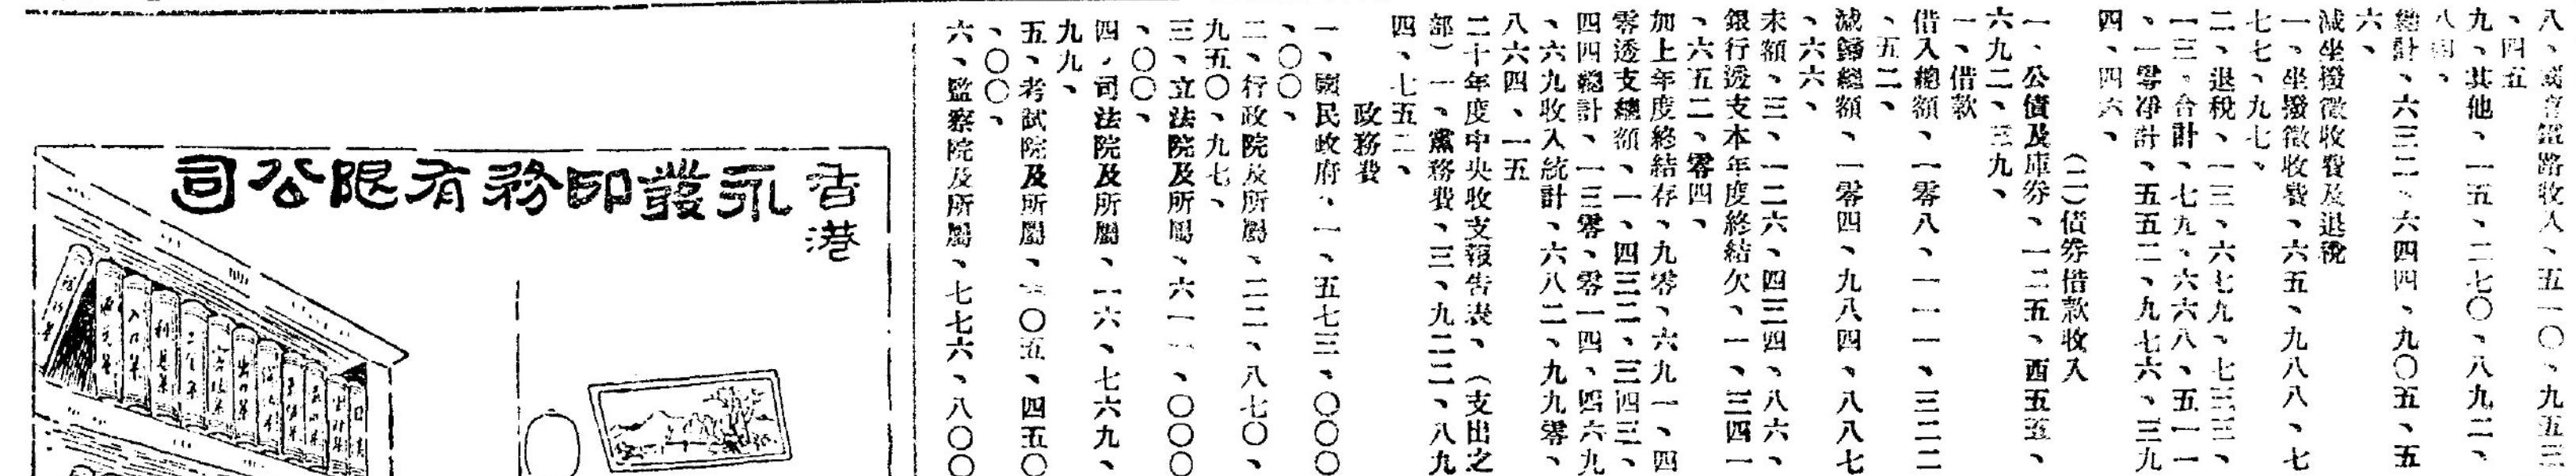 八、國有鐵路收入、五一〇、九五三
、四五
九、其他、一五、二七〇、八九二、
八四、
總計、六三二、六四四、九〇五、五
六、
減坐撥徵收費及退稅
一、坐撥徵收費、六五、九八八、七
七七、九七、
二、退稅、一三、六七九、七三三、
一三、合計、七九、六六八、五一一
、一零淨計、五五二、九七六、三九
四、四六、
(二)債券借款收入
一、公債及庫券、一二五、西五五、
六九二、三九、
一、借款
借入總額、一零八、一一一、三二二
、五二、
減歸總額、一零四、九八四、八八七
、六六、
未額、三、一二六、四三四、八六、
銀行透支本年度終結欠、一、三四一
、六五二、零四、
加上年度終結存、九零、六九一、四
零透支總額、一、四三二、三四三、
四四總計、一三零、零一四、四六九
、六九收入統計、六八二、九九零、
八六四、一五
二十年度中央收支報告表、(支出之
部)一、黨務費、三、九二二、八九
四、七五二、
政務費
一、國民政府、一、五七三、〇〇〇
、〇〇、
二、行政院及所屬、二二、八七〇、
九五〇、九七、
三、立法院及所屬、六一一、〇〇〇
、〇〇、
四、司法院及所屬、一六、七六九、
九九、
五、考試院及所屬、〇五、四五〇
、〇〇、
六、監察院及所屬、七七六、八〇〇
香港
永發印務有限公司